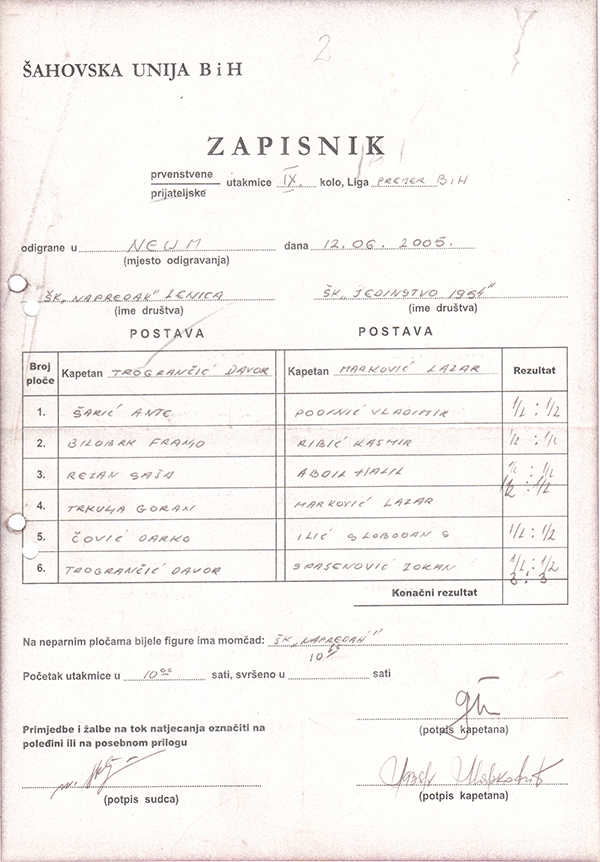 2
ŠAHOVSKA UNIJA B i H
ZAPISNIK
prvenstvene
prijateljske utakmice IX. kolo, Liga PREMER BIH
odigrane u NEUM dana 12.06.2005.
(mjesto odigravanja)
ŠK „NAPREDAK" ZENICA ŠK „JEDINSTVO 1954"
(ime društva) (ime društva)
POSTAVA POSTAVA
Broj ploče Kapetan TROGRANČIĆ DAVOR Kapetan MARKOVIĆ LAZAR Rezultat
1. ŠARIĆ ANTE PODINIĆ VLADIMIR 1/2 : 1/2
2. BILOBRK FRANO RIBIĆ KASMIR 1/2 : 1/2
3. REZAN SAŠA ABDIL HALIL 1/2 : 1/2
4. TRKULJA GORAN MARKOVIĆ LAZAR 1/2 : 1/2
5. ČOVIĆ DARKO ILIĆ SLOBODAN S 1/2 : 1/2
6. TROGRANČIĆ DAVOR SPASENOVIĆ ZORAN 1/2 : 1/2
Konačni rezultat 3 : 3
Na neparnim pločama bijele figure ima momčad: ŠK „NAPREDAK"
Početak utakmice u 10 00 sati, svršeno u 10 sati
Primjedbe i žalbe na tok natjecanja označiti na
poleđini ili na posebnom prilogu
(potpis kapetana)
(potpis sudca) (potpis kapetana)